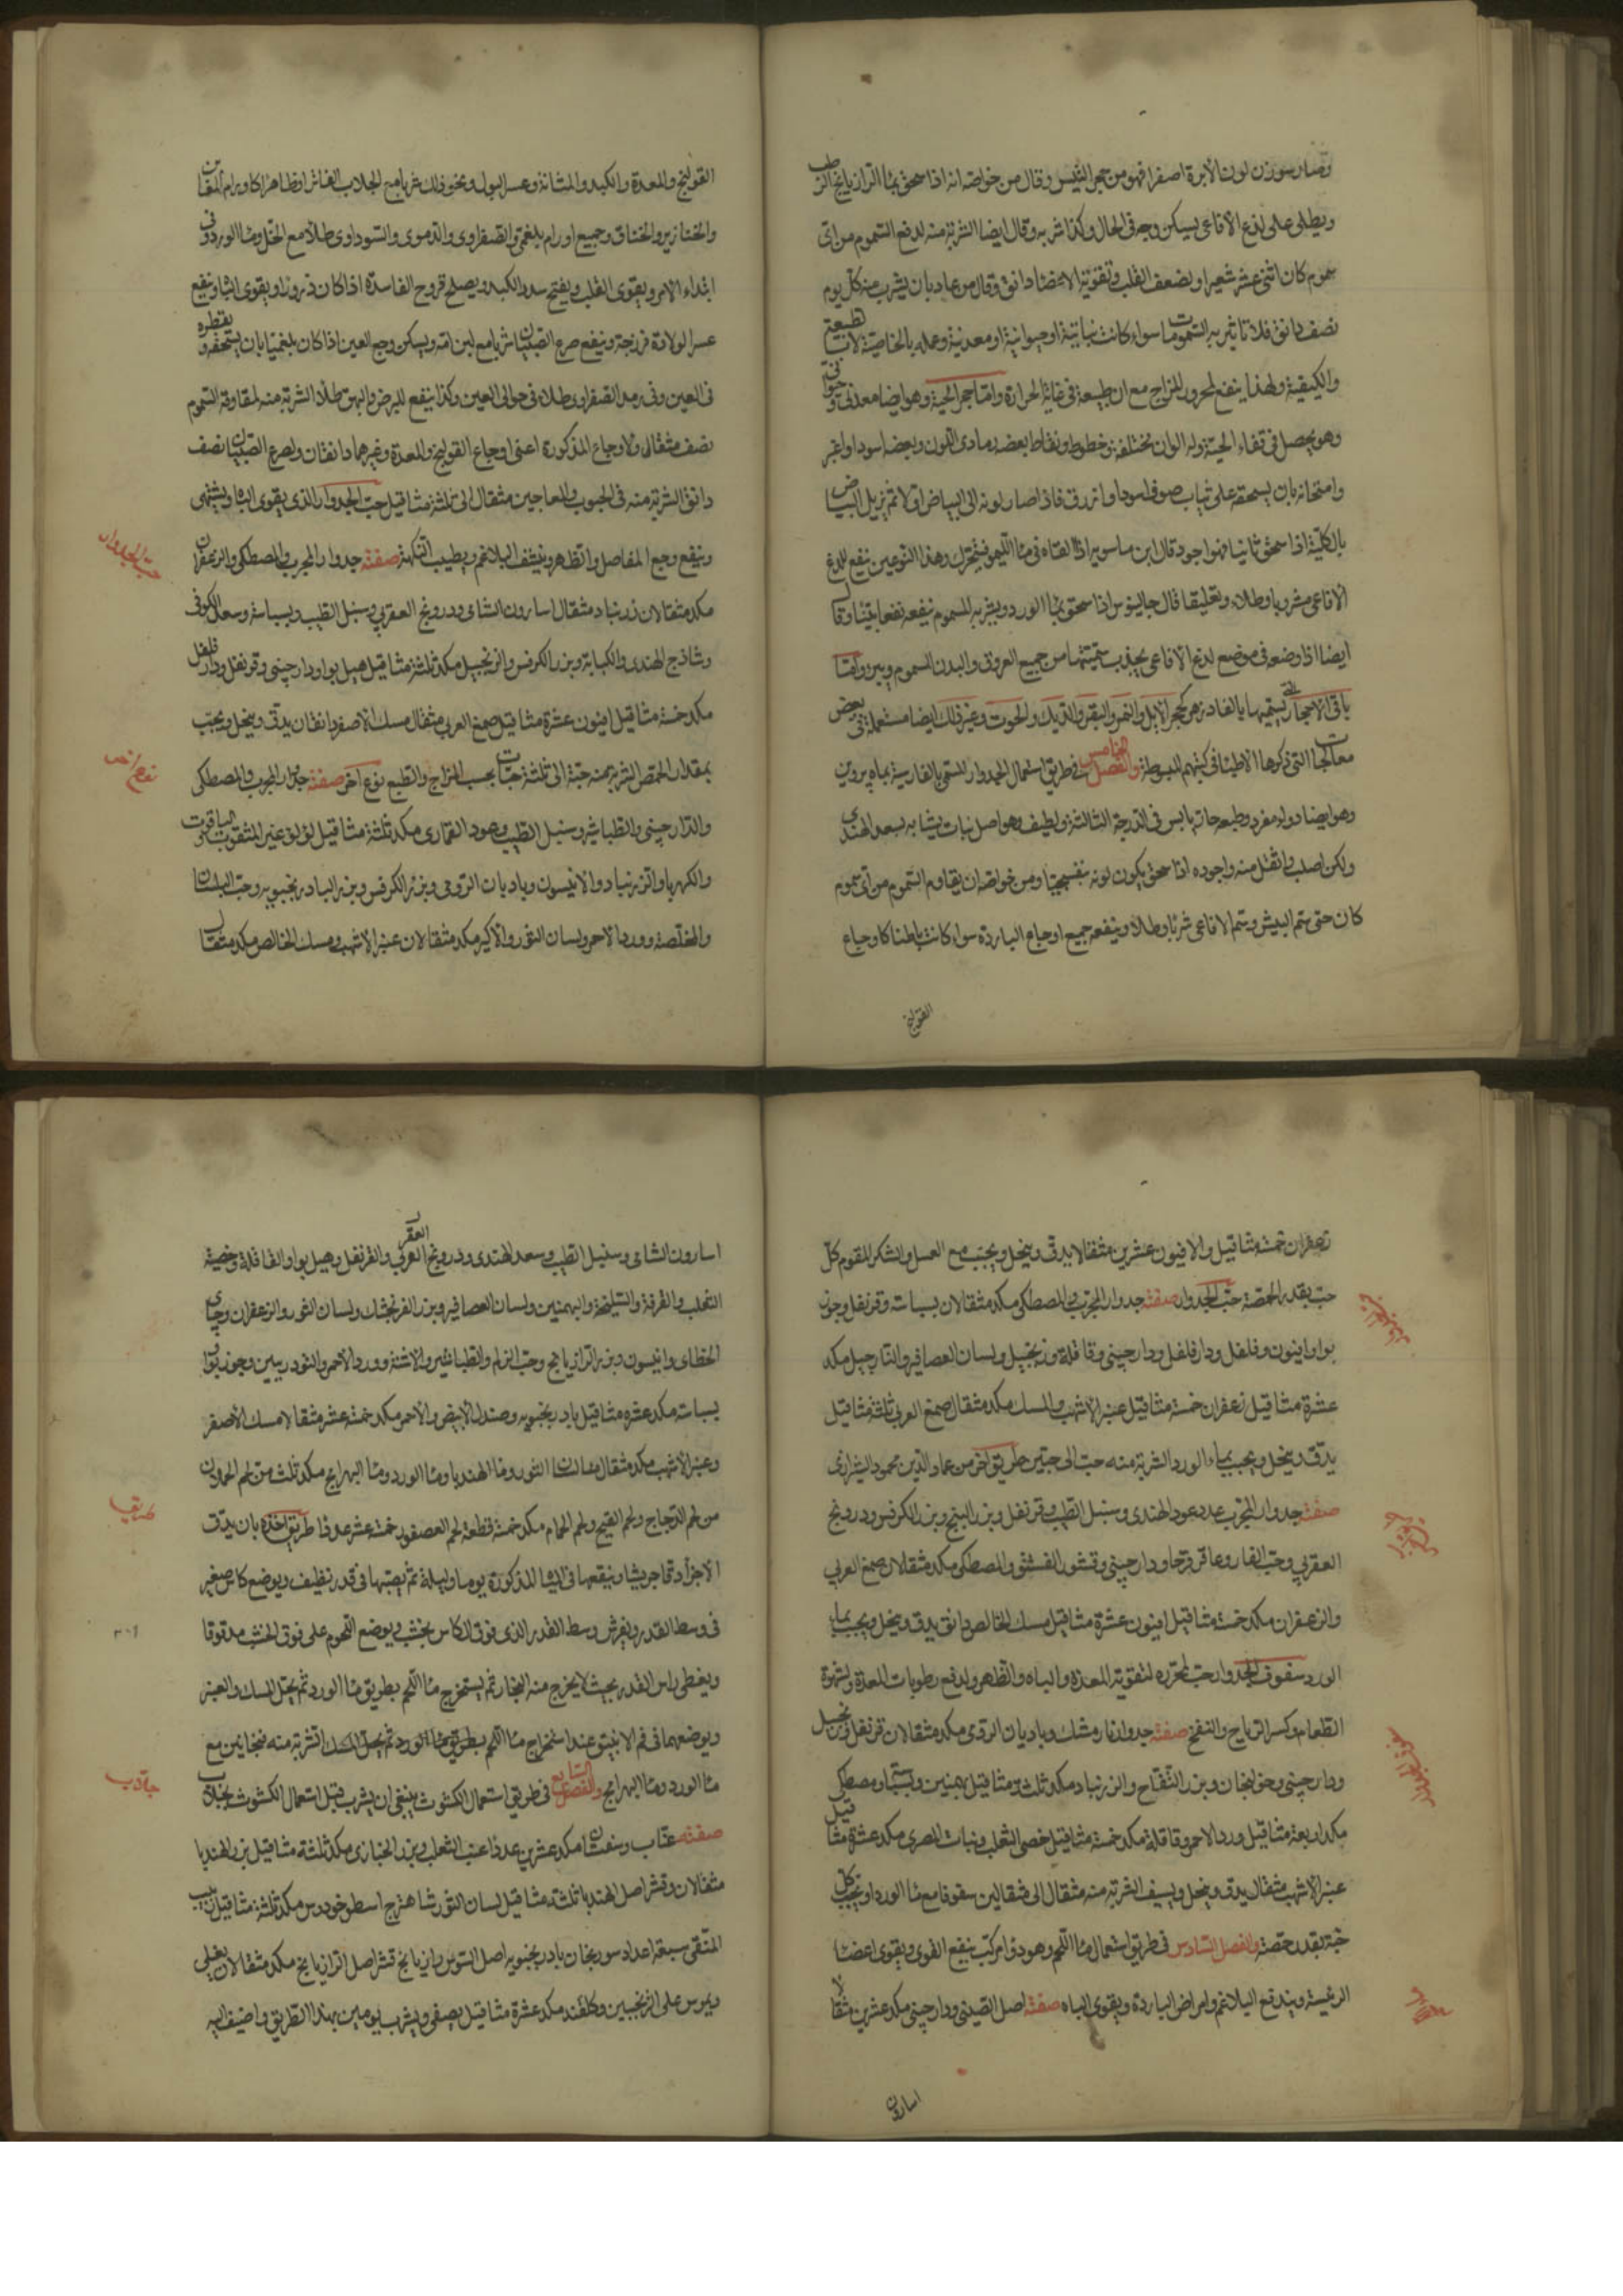 وصار سوزن لون الابرة اصفرا فهو من حجر التيس وقال من خواصه انه اذا سحق بماء الرازيانج الرطب
ويطلى على لدغ الافاعى يسكن وجعه فى الحال وكذا شربه وقال ايضا الشربة منه لدفع السموم من اى
سموم كان اثنى عشر شعيرا ولضعف القلب وتقوية الاعضاء دانق وقال من عاد بان يشرب منه كل يوم
نصف دانق فلا تاثير به السمومات سواء كانت نباتية او حيوانية او معدنية وعمله بالخاصية لا بالطبيعة
والكيفية ولهذا ينفع لمحرور المزاج مع ان طبيعة فى غاية الحرارة واما حجر الحية وهو ايضا معدنى وحيوانى
وهو يحصل فى قفاء الحية وله الوان مختلفة وخطوط ونقاط بعضه رمادى اللون وبعضه اسود او اغبر
وامتحانه بان يسحقه على ثياب صوف اسود او ازرق فاذا صار لونه الى البياض اولا ثم يزيل البياض
بالكلية اذا سحق ثانيا فهو اجود قال ابن ماسويه اذا القاه فى ماء الليمو فيتحرك وهذا النوعين ينفع للدغ
الافاعى مشروبا وطلاء وتعليقا قال جالينوس اذا سحق بماء الورد ويشربه المسموم ينفعه نفعا بينا وقال
ايضا اذا وضعه فى موضع لدغ الافاعى يجذب سميتها من جميع العروق والبدن المسموم ويبرز واما
باقى الاحجار التى يسميها بالفادزهر كحجر الابل والنمر والبقر والديك والحوت وغير ذلك ايضا مستعملة فى بعض
معالجات التى ذكرها الاطباء فى كتبهم المبسوطة والفصل الخامس فى طريق استعمال الجدوار المسمى بالفارسية بماه پروين
وهو ايضا دواء مفرد وطبعه حار يابس فى الدرجة الثالثة ولطيف وهو اصل نبات يشابه بسعد الهندى
ولكن اصلب واثقل منه واجوده اذا سحق يكون لونه بنفسجيا ومن خواصه ان يقاوم السموم من اى سموم
كان حتى سم البيش وسم الافاعى شربا وطلاء وينفعه جميع اوجاع الباردة سواء كانت باطنا كاوجاع
القولنج
القولنج والمعدة والكبد والمثانة وعسر البول ونحو ذلك شربا مع الجلاب الفاتر او ظاهرا كاورام المغابن
والخنازير والخناق وجميع اورام بلغمى والصفراوى والدموى والسوداوى طلاء مع الخل وماء الورد فى
ابتداء الامر ويقوى القلب ويفتح سدد الكبد ويصلح قروح الفاسدة اذا كان ذرورا ويقوى الباه وينفع
عسر الولادة فرزجة وينفع صرع الصبيان شربا مع لبن امه ويسكن وجع العين اذا كان بلغميا بان يسحقه ويقطره
فى العين وفى رمد الصفراوى طلاء فى حوالى العين وكذا ينفع للبرص والبهق طلاء الشربة منه لمقاومة السموم
نصف مثقال ولاوجاع المذكورة اعنى اوجاع القولنج والمعدة وغيرهما دانقان ولصرع الصبيان نصف
دانق الشربة منه فى الحبوب والمعاجين مثقال الى ثلثة مثاقيل حب الجدوار الذى يقوى الباه ويشهى
وينفع وجع المفاصل والظهر وينشف البلاغم ويطيب النكهة صفته جدوار المجرب والمصطكى والزعفران
مكد مثقالان زرنباد مثقال اسارون الشامى ودرونج العقربى وسنبل الطيب وبسباسة وسعد الكوفى
وشاذج الهندى والكبابة وبزر الكرفس والزنجبيل مكد ثلثة مثاقيل هيل بوا ودارچينى وقرنفل ودار فلفل
مكد خمسة مثاقيل افيون عشرة مثاقيل صمغ العربى مثقال مسك الاصفر دانقان يدق وينخل ويحبب
بمقدار الحمص الشربة منه حبة الى ثلثة حبات بحسب المزاج والطبع نوع اخر صفته جدوار المجرب والمصطكى
والدارچينى والطباشير وسنبل الطيب وعود القمارى مكد ثلثة مثاقيل لؤلؤ غير المثقوب والياقوت
والكهربا والزرنباد والانيسون وباديان الرومى وبزر الكرفس وبزر البادرنجبويه وحب البلسان
والمخلصة وورد الاحمر ولسان الثور والاكير مكد مثقالان عنبر الاشهب ومسك الخالص مكد مثقال
حب الجدوار
نوع اخر
زعفران خمسة مثاقيل والافيون عشرين مثقالا يدق وينخل ويحبب مع العسل والسكر المقوم كل
حب بقدر الحمصة حب الجدوار صفته جدوار المجرب المصطكى مكد مثقالان بسباسة وقرنفل وجوز
بوا وافيون وفلفل ودار فلفل ودارچينى وقاقلة وزنجبيل ولسان العصافير والنارجيل مكد
عشرة مثاقيل زعفران خمسة مثاقيل عنبر الاشهب والمسك مكد مثقال صمغ العربى ثلثة مثاقيل
يدق وينخل ويحبب بماء الورد الشربة منه حب الى حبتين طريق اخر من عماد الدين محمود الشيرازى
صفته جدوار المجرب عدد عود الهندى وسنبل الطيب وقرنفل وبزر البنج وبزر الكرفس ودرونج
العقربى وحب الغار وعاقرقرحا ودارچينى وقشور الفستق والمصطكى مكد مثقالان صمغ العربى
والزعفران مكد خمسة مثاقيل افيون عشرة مثاقيل مسك الخالص دانق يدق وينخل ويحبب بماء
الورد سفوف الجدوار حب لمحرره لتقوية المعدة والباه والظهر ولدفع رطوبات المعدة ولشهوة
الطعام وكسر الرياح والنفخ صفته جدوار نارمشك وباديان الرومى مكد مثقالان قرنفل وزنجبيل
ودارچينى وخولنجان وبزر التفاح والزرنباد مكد ثلثة مثاقيل بهمنين وبسباسة ومصطكى
مكد اربعة مثاقيل ورد الاحمر وقاقلة مكد خمسة مثاقيل خصى الثعلب ونبات المصرى مكد عشرة مثاقيل
عنبر الاشهب مثقال يدق وينخل ويسف الشربة منه مثقال الى مثقالين سفوفا مع ماء الورد او يحبب كل
حبة بقدر حمصة والفصل السادس فى طريق استعمال ماء اللحم وهو دواء مركب ينفع القوى ويقوى اعضاء
الرئيسة ويندفع البلاغم وامراض الباردة ويقوى الباه صفته اصل الصينى ودارچينى مكد عشرين مثقالا
اسارون
اسارون الشامى وسنبل الطيب وسعد الهندى ودرونج العقربى والقرنفل وهيل بوا والقاقلة وخصية
الثعلب والقرفة والسليخة والبهمنين ولسان العصافير وبزر الفرنجمشك ولسان الثور والزعفران وچاى
الخطاى وانيسون وبزر الرازيانج وحب الزلم والطباشير والاشنة وورد الاحمر والتودريين وجوز بوا
بسباسة مكد عشرة مثاقيل بادرنجبويه وصندل الابيض والاحمر مكد خمسة عشر مثقالا مسك الاصفر
وعنبر الاشهب مكد مثقال ماء لسان الثور وماء الهندبا وماء الورد وماء البهرامج مكد ثلث من لحم الحملان
من لحم الدجاج ولحم القبج ولحم الحمام مكد خمسة قطعة لحم العصفور خمسة عشر عددا طريق اخذه بان يدق
الاجزاء دقا جريشا وينقعها فى المياه المذكورة يوما وليلة ثم يصبها فى قدر نظيف ويوضع كاس صغير
فى وسط القدر ويفرش وسط القدر الذى فوق الكاس بخشب ويوضع اللحوم على فوق الخشب مدقوقا
ويغطى راس القدر بحيث لا يخرج منه البخار ثم يستخرج ماء اللحم بطريق ماء الورد ثم يحل المسك والعنبر
ويوضعهما فى فم الانبيق عند استخراج ماء اللحم بطريق ماء الورد ثم يحل المسك الشربة منه فنجانين مع
ماء الورد وماء البهرامج والفصل السابع فى طريق استعمال الكشوث ينبغى ان يشرب قبل استعمال الكشوث بجلاب
صفته عناب وسفستان مكد عشرين عددا عنب الثعلب وبزر الخبازى مكد ثلثة مثاقيل بزر الهندبا
مثقالان وقشر اصل الهندبا ثلثة مثاقيل لسان الثور شاهترج اسطوخودوس مكد ثلثة مثاقيل زبيب
المنقى سبعة اعداد سورنجان بادرنجبويه اصل السوس رازيانج قشر اصل الرازيانج مكد مثقالان يغلى
ويمرس على الزنجبين وكلقند مكد عشرة مثاقيل يصفى ويشرب يومين بهذا الطريق واضيف اليه
جلاب